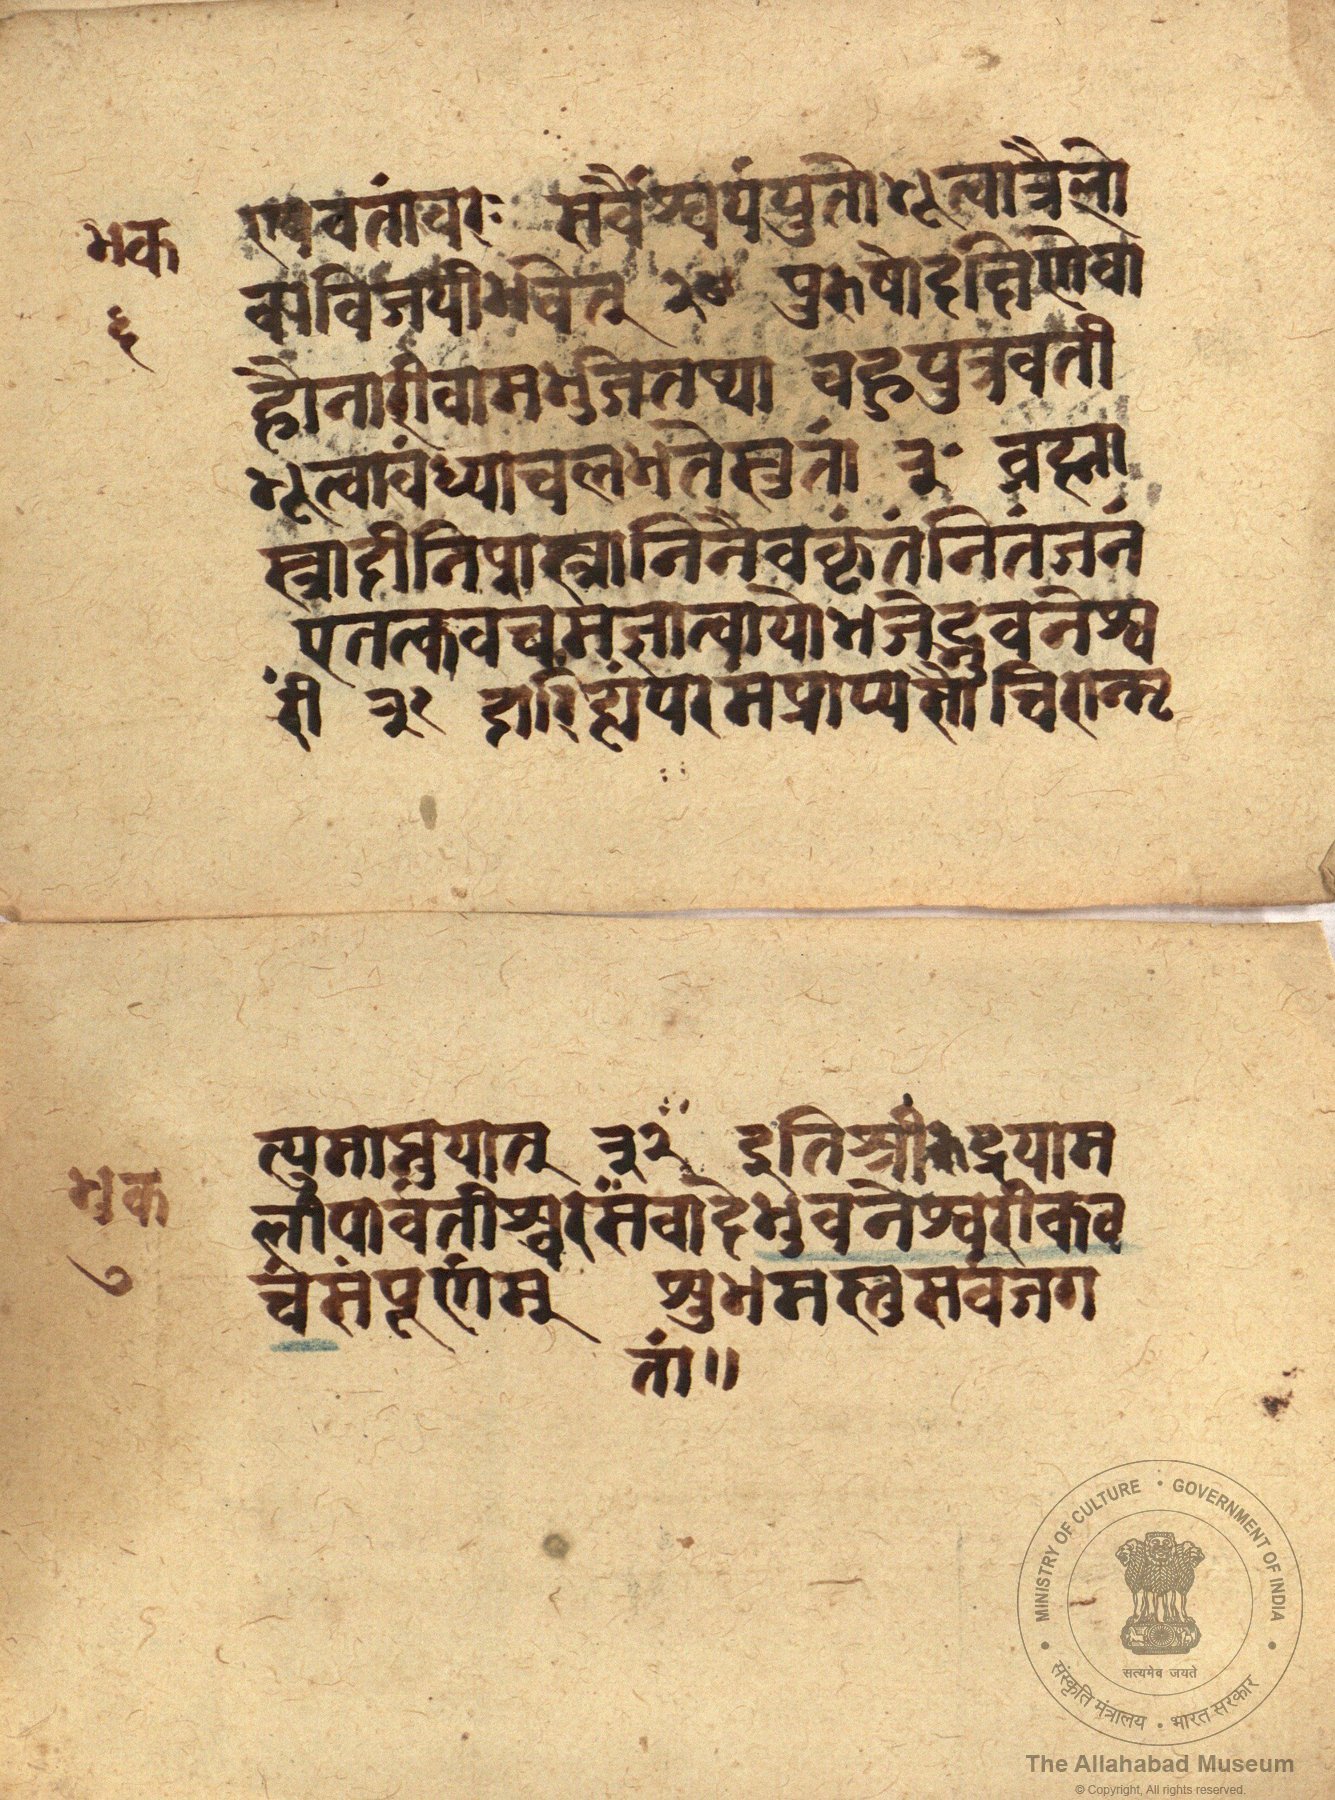 भक
६
ण्यवतांवरः सर्वैश्वर्ययुतोभूत्वात्रैलो
क्यविजयीभवेत् २९ पुरुषोदक्षिणेवा
हौनारीवामभुजेतथा वहुपुत्रवती
भूत्वावंध्याचलभतेसुतां ३॰ व्रह्मा
स्त्रादीनिशस्त्रानिनैवकृंतंनितंजनं
एतत्कवचमज्ञात्वायोभजेद्भुवनेश्व
रीं ३१ दारिद्र्यंपरमप्राप्यसोचिरान्मृ
भुक
७
त्युमाप्नुयात् ३२ इतिश्रीरुद्रयाम
लेपार्वतीश्वरसंवादेभुवनेश्वरीकव
चंसंपूर्णम् शुभमस्तुसर्वजग
तां॥
MINISTRY OF CULTURE • GOVERNMENT OF INDIA
सत्यमेव जयते
संस्कृति मंत्रालय • भारत सरकार
The Allahabad Museum
© Copyright, All rights reserved.